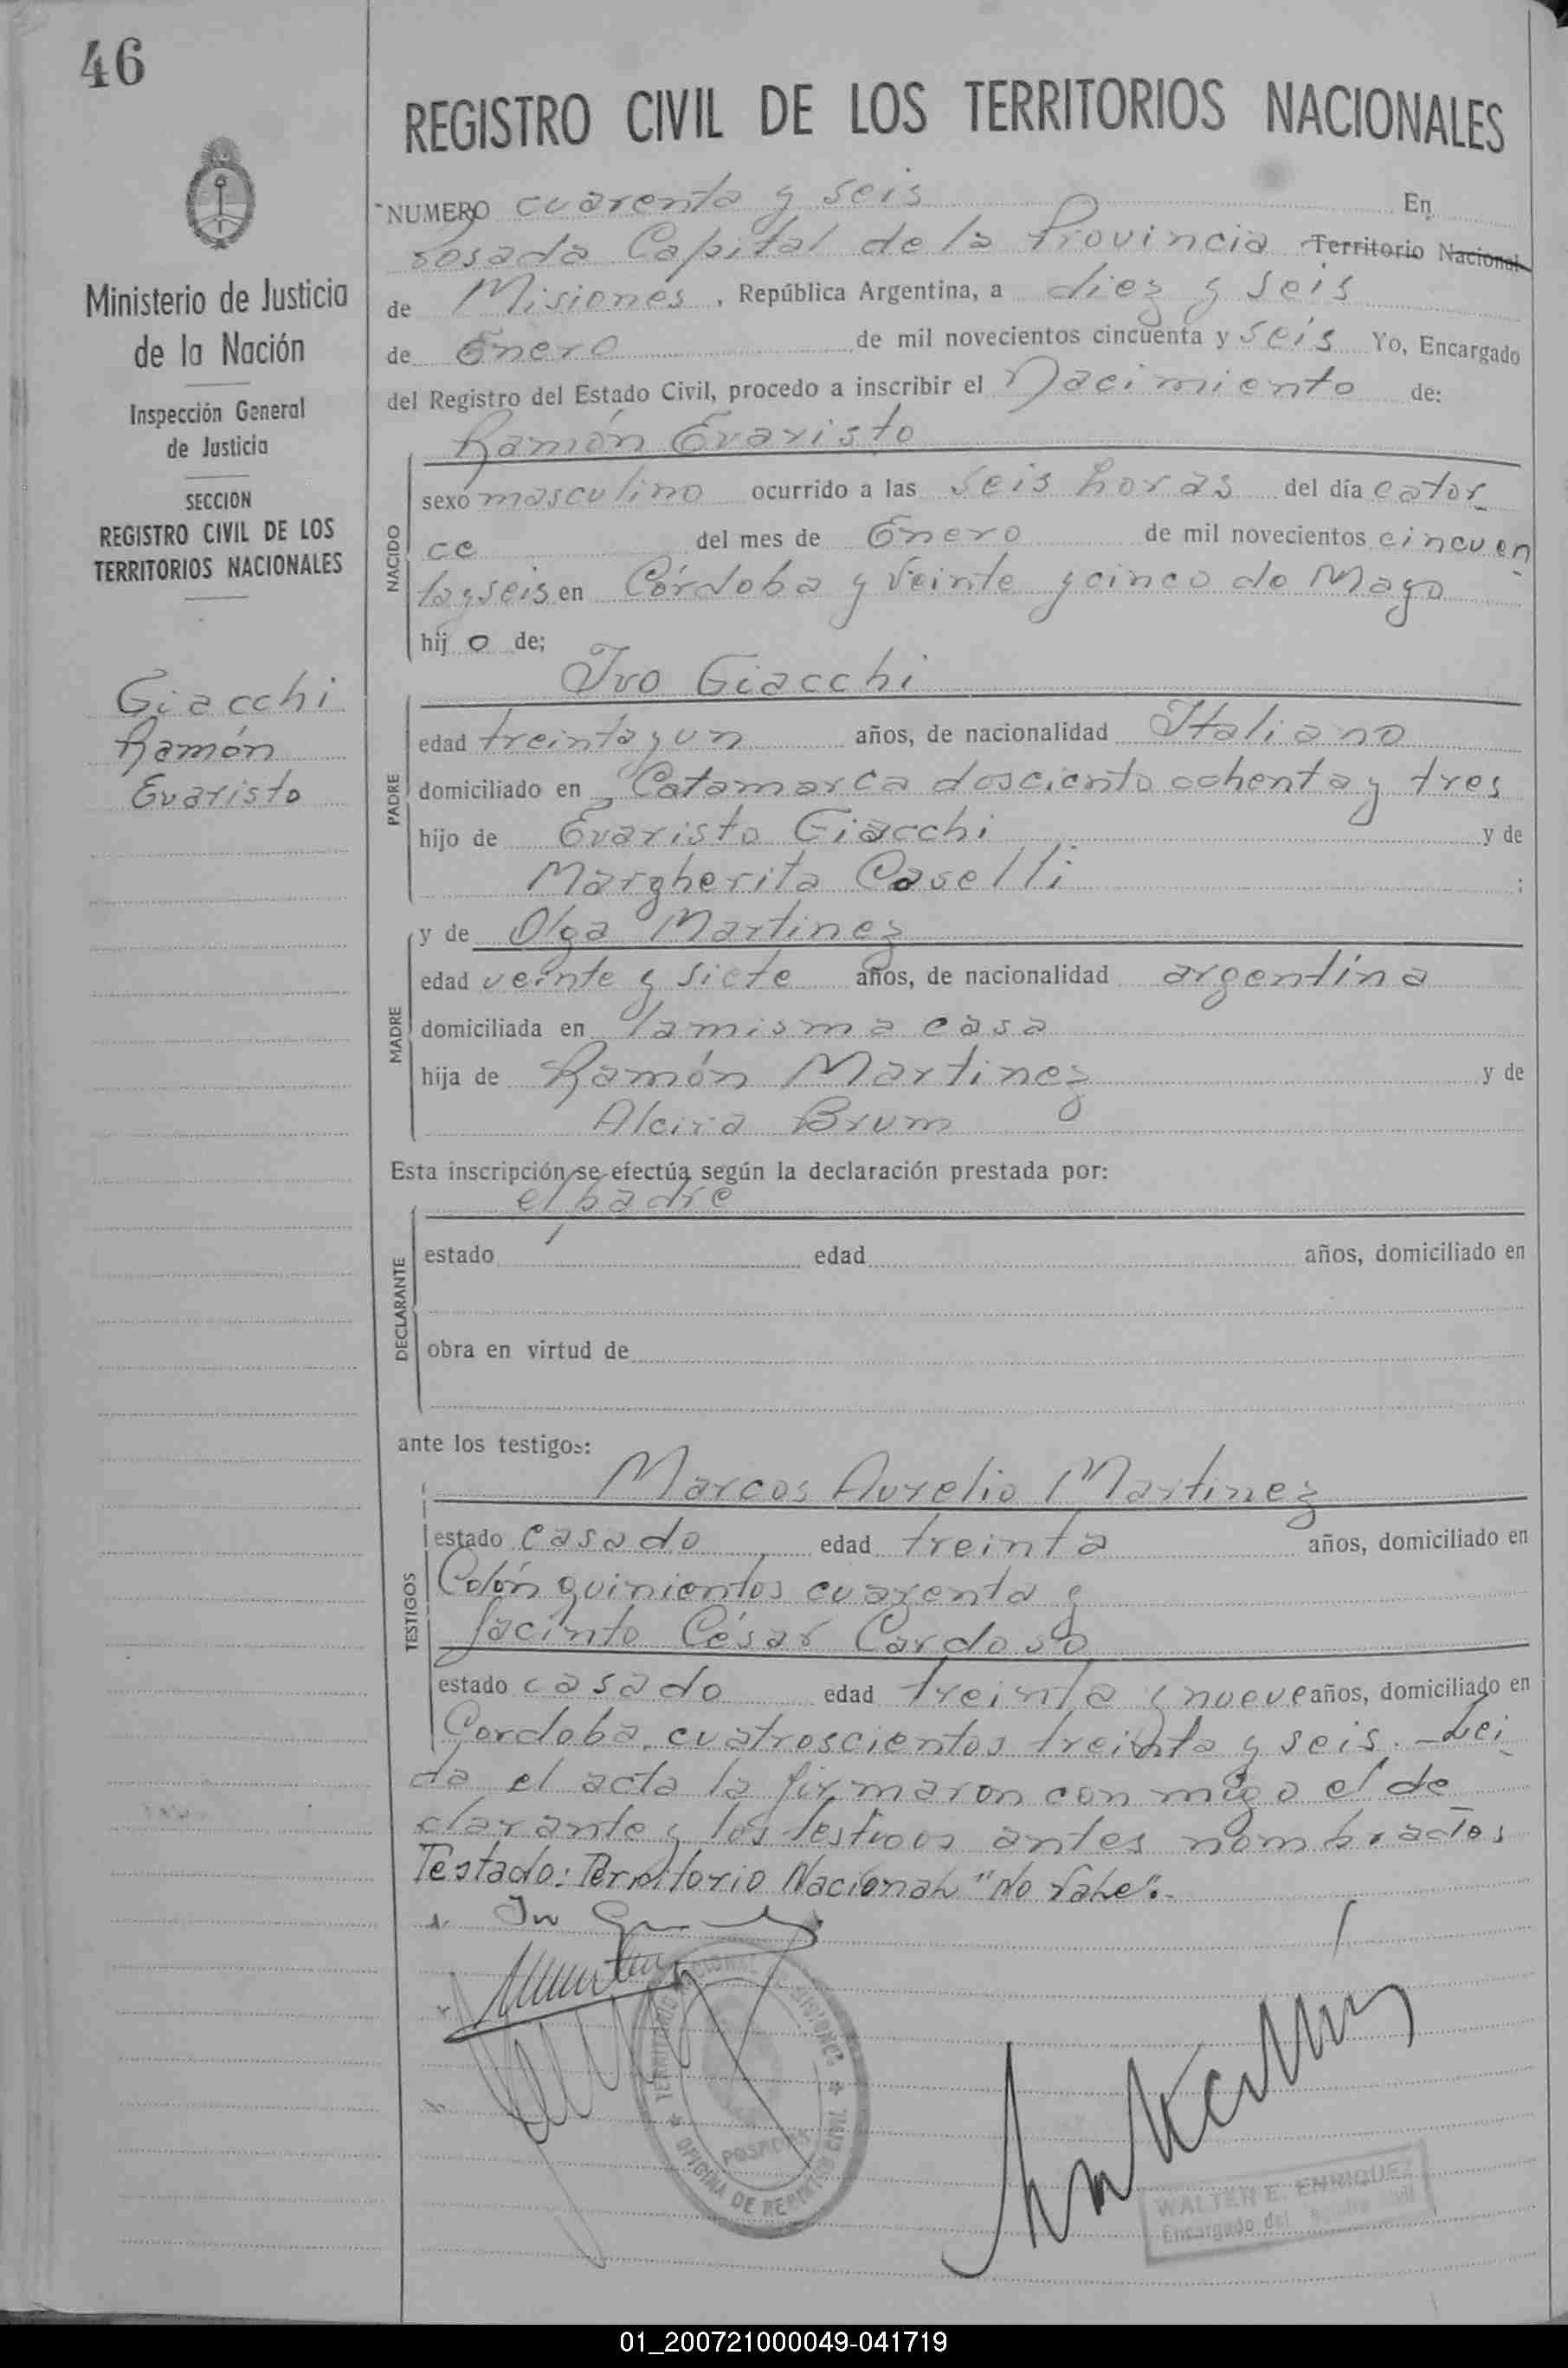 46
Ministerio de Justicia
de la Nación
Inspección General
de Justicia
SECCION
REGISTRO CIVIL DE LOS
TERRITORIOS NACIONALES
Giacchi
Ramón
Evaristo
REGISTRO CIVIL DE LOS TERRITORIOS NACIONALES
NUMERO cuarenta y seis En
Posada Capital de la Provincia Territorio Nacional
de Misiones, República Argentina, a diez y seis
de Enero de mil novecientos cincuenta y seis Yo, Encargado
del Registro del Estado Civil, procedo a inscribir el Nacimiento de:
Ramón Evaristo
NACIDO
sexo masculino ocurrido a las seis horas del día cator
ce del mes de Enero de mil novecientos cincuen
tayseis en Córdoba y Veinte y cinco de Mayo
hij o de;
Ivo Giacchi
PADRE
edad treinta y un años, de nacionalidad Italiano
domiciliado en Catamarca dosciento ochenta y tres
hijo de Evaristo Giacchi y de
Margherita Caselli ;
MADRE
y de Olga Martinez
edad veinte y siete años, de nacionalidad argentina
domiciliada en la misma casa
hija de Ramón Martinez y de
Alcira Brum
Esta inscripción se efectúa según la declaración prestada por:
el padre
DECLARANTE
estado edad años, domiciliado en
obra en virtud de
ante los testigos:
Marcos Aurelio Martinez
TESTIGOS
estado casado edad treinta años, domiciliado en
Colón quinientos cuarenta y
Jacinto César Cardoso
estado casado edad treinta y nueve años, domiciliado en
Cordoba cuatroscientos treinta y seis. - Lei
da el acta la firmaron con migo el de
clarante y los testigos antes nombrados
Testado: Territorio Nacional "No Vale".-
TERRITORIO NACIONAL DE MISIONES
OFICINA DE REGISTRO CIVIL
POSADAS
WALTER E. ENRIQUEZ
Encargado del Registro Civil
01_200721000049-041719